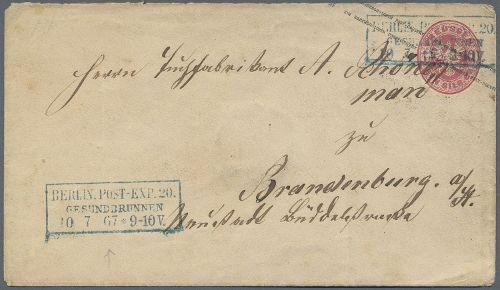 BERLIN, POST-EXP. 20.
GESUNDBRUNNEN
10 7 67 * 9-10V.
Herrn Tuchfabrikant A. Schöne
man
zu
Brandenburg. a/H.
Neustadt Büddelstraße
BERLIN, POST-EXP. 20.
GESUNDBRUNNEN
10 7 67 * 9-10V.